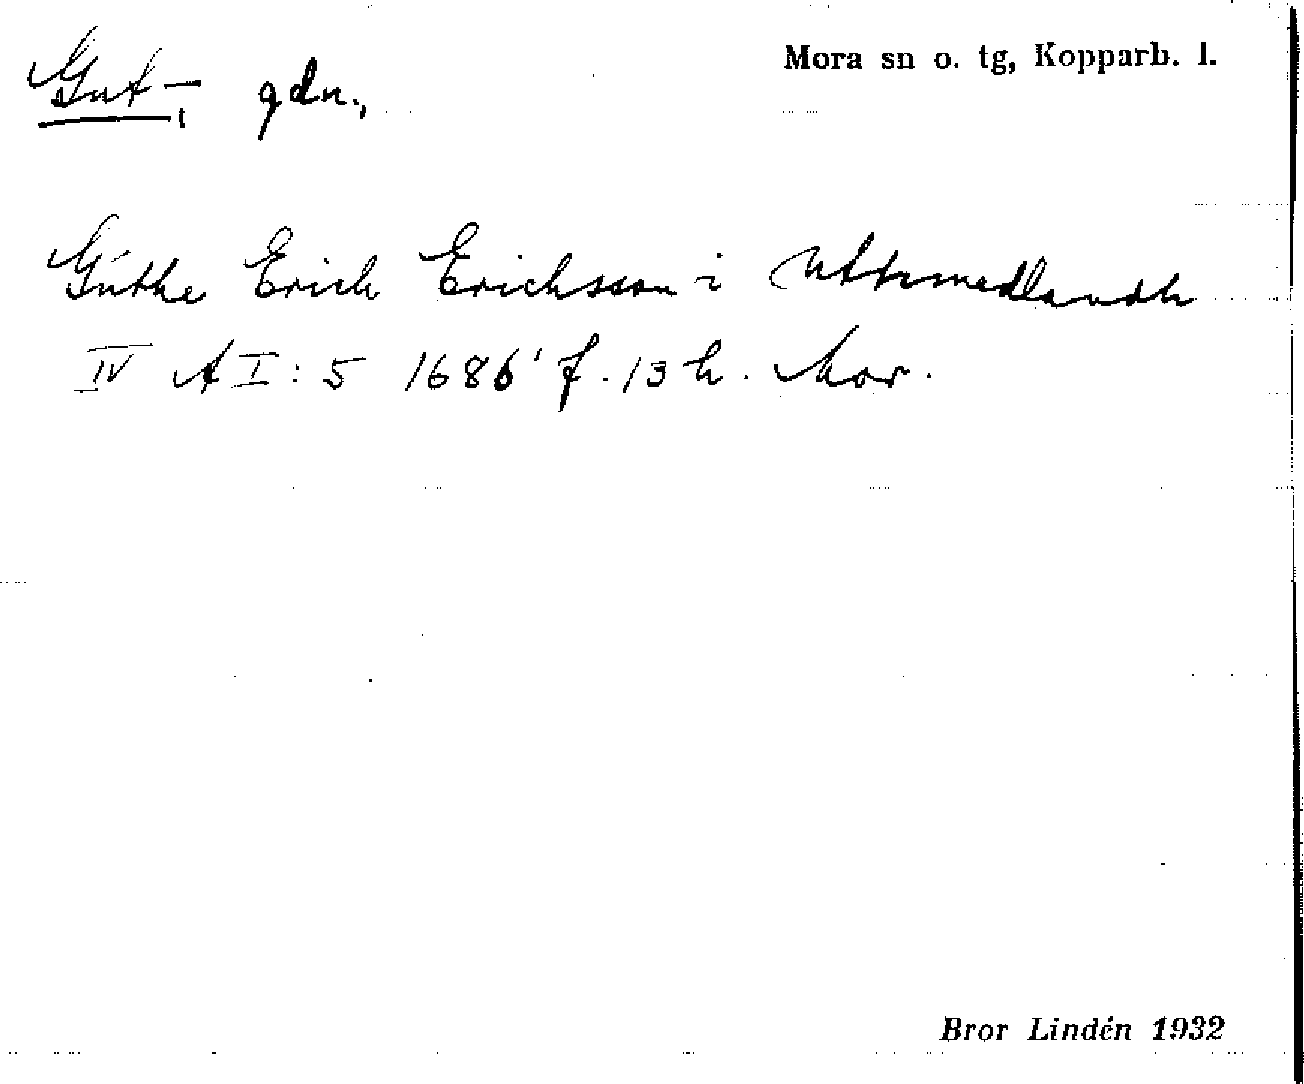 Mora sn o. tg, Kopparb. l.
Gut-, gdn.,
Guthe Erich Erichsson i Uthmedlandh
IV A I: 5 1686' f. 13 h. Mor.
Bror Lindén 1932